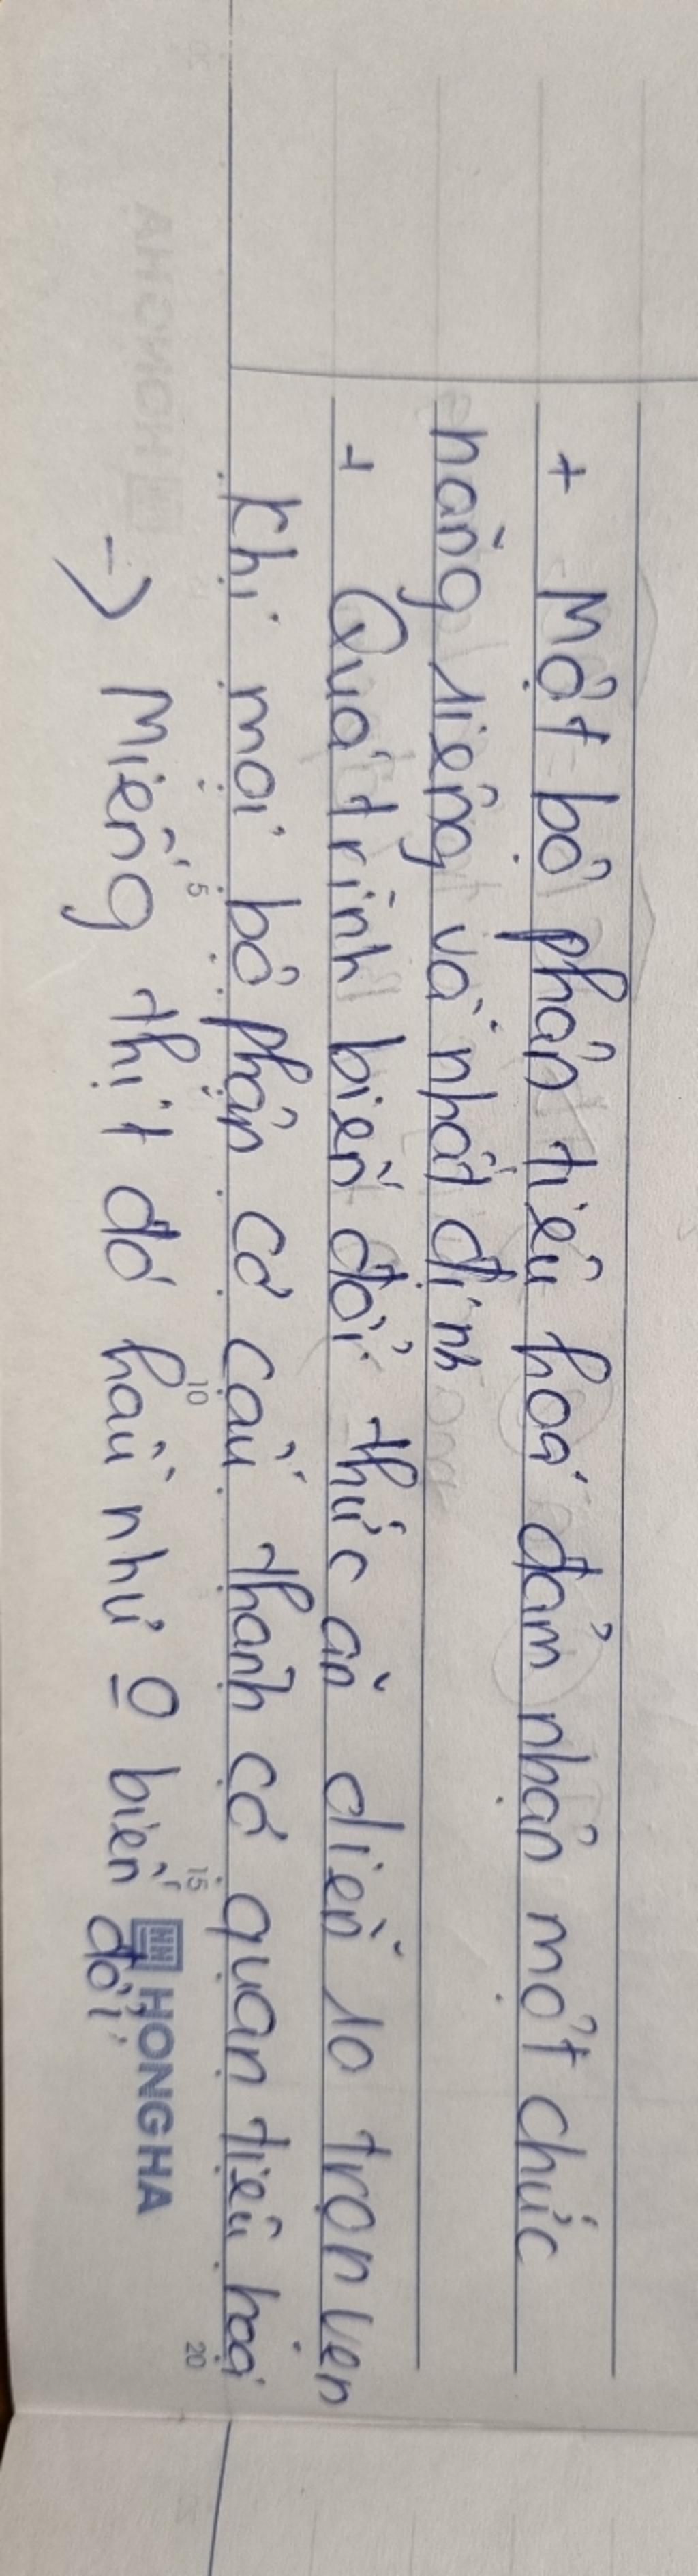 + Một bộ phận tiêu hoá đảm nhận một chức
năng riêng và nhất định
+ Quá trình biến đổi thức ăn diễn ra trọn vẹn
khi mọi bộ phận cơ cấu thành cơ quan tiêu hoá
-> Miếng thịt đó hầu như O biến đổi
5 10 15 20
HONG HA